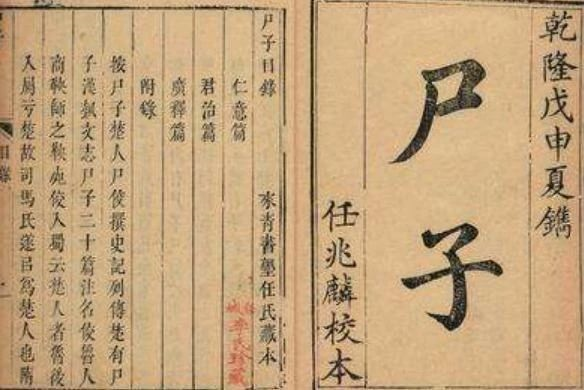 乾隆戊申夏鐫
尸子
任兆麟校本
尸子目錄
來青書塾任氏藏本
仁意篇
君治篇
廣釋篇
附錄
按尸子楚人尸佼撰史記列傳楚有尸
子漢蓺文志尸子二十篇注名佼魯人
商鞅師之鞅死佼入蜀云楚人者魯後
入屬亏楚故司馬氏遂㠯爲楚人也隋
城李氏珍藏
目錄